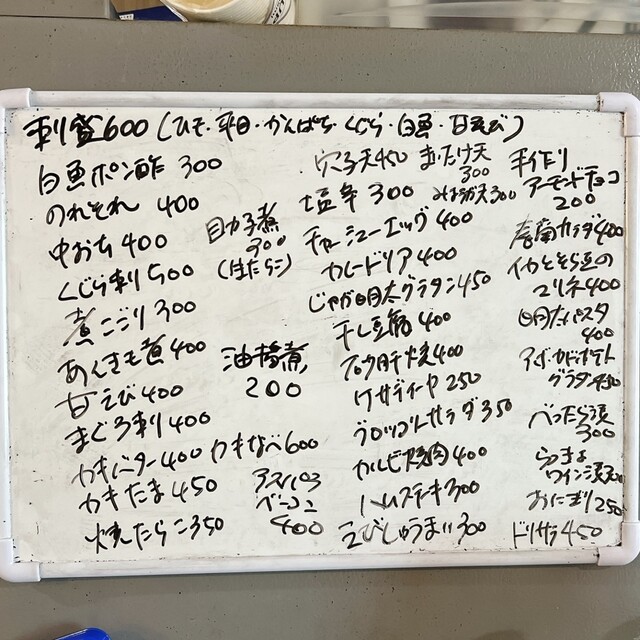 刺盛600(ひも・平目・かんぱち・くじら・白魚・甘えび)
白魚ポン酢 300
のれそれ 400
中おち 400
くじら刺 500
煮こごり 300
あんきも煮 400
甘えび 400
まぐろ刺 400
カキバター 400
カキたま 450
焼たらこ 350
助子煮
300
(まだらこ)
油揚煮
200
カキなべ 600
アスパラ
ベーコン
400
穴子天 450
まいたけ天
300
塩辛 300
チャーシューエッグ 400
カレードリア 400
じゃが明太グラタン 450
干し豆腐 400
砂肝焼 400
ケサディーヤ 250
ブロッコリーサラダ 350
カルビ焼肉 400
ハムステーキ 300
えびしゅうまい 300
手作り
アーモンドチョコ
200
春菊サラダ 400
イカとそら豆の
マリネ 400
明太パスタ
400
アボカドポテト
グラタン 450
べったら漬
300
らっきょ
ワイン漬 300
おにぎり 250
ドリサラ 450